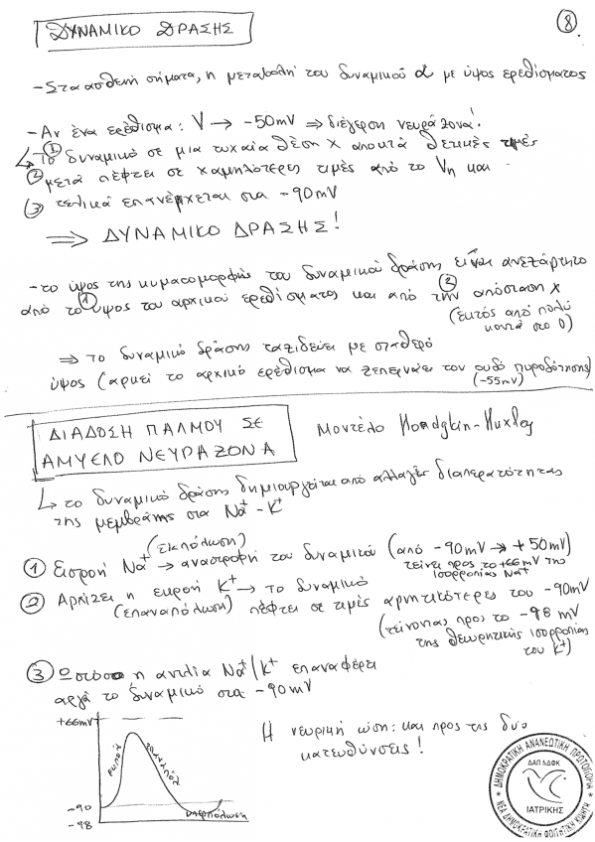 ΔΥΝΑΜΙΚΟ ΔΡΑΣΗΣ
8
- Στα ασθενή σήματα, η μεταβολή του δυναμικού α με ύψος ερεθίσματος
- Αν ένα ερέθισμα: V → -50mV ⇒ διέγερση νευράξονα!
↳ ① Το δυναμικό σε μια τυχαία θέση x αποκτά θετικές τιμές
② μετά πέφτει σε χαμηλότερες τιμές από το Vη και
③ τελικά επανέρχεται στα -90mV
⇒ ΔΥΝΑΜΙΚΟ ΔΡΑΣΗΣ!
- το ύψος της κυματομορφής του δυναμικού δράσης είναι ανεξάρτητο
από το ① ύψος του αρχικού ερεθίσματος και από την ② απόσταση x
(εκτός από πολύ
κοντά στο 0)
⇒ το δυναμικό δράσης ταξιδεύει με σταθερό
ύψος (αρκεί το αρχικό ερέθισμα να ξεπερνάει τον ουδό πυροδότησης)
(-55mV)
ΔΙΑΔΟΣΗ ΠΑΛΜΟΥ ΣΕ
ΑΜΥΕΛΟ ΝΕΥΡΑΞΟΝΑ
Μοντέλο Hondgkin-Huxley
↳ το δυναμικό δράσης δημιουργείται από αλλαγές διαπερατότητας
της μεμβράνης στα Na⁺ - K⁺
(εκπόλωση)
① Εισροή Na⁺ → αναστροφή του δυναμικού (από -90mV → +50mV)
τείνει προς το +66mV της
ισορροπίας Na⁺
② Αρχίζει η εκροή K⁺ → το δυναμικό
(επαναπόλωση) πέφτει σε τιμές αρνητικότερες του -90mV
(τείνοντας προς το -98 mV
της θεωρητικής ισορροπίας
του K⁺)
③ Ωστόσο η αντλία Na⁺/K⁺ επαναφέρει
αργά το δυναμικό στα -90mV
+66mV
επαναπόλ.
-90
-98
υπερπόλωση
Η νευρική ώση: και προς τις δυο
κατευθύνσεις!
ΔΗΜΟΚΡΑΤΙΚΗ ΑΝΑΝΕΩΤΙΚΗ ΠΡΩΤΟΠΟΡΙΑ
ΔΑΠ ΝΔΦΚ
ΙΑΤΡΙΚΗΣ
ΝΕΑ ΔΗΜΟΚΡΑΤΙΚΗ ΦΟΙΤΗΤΙΚΗ ΚΙΝΗΣΗ